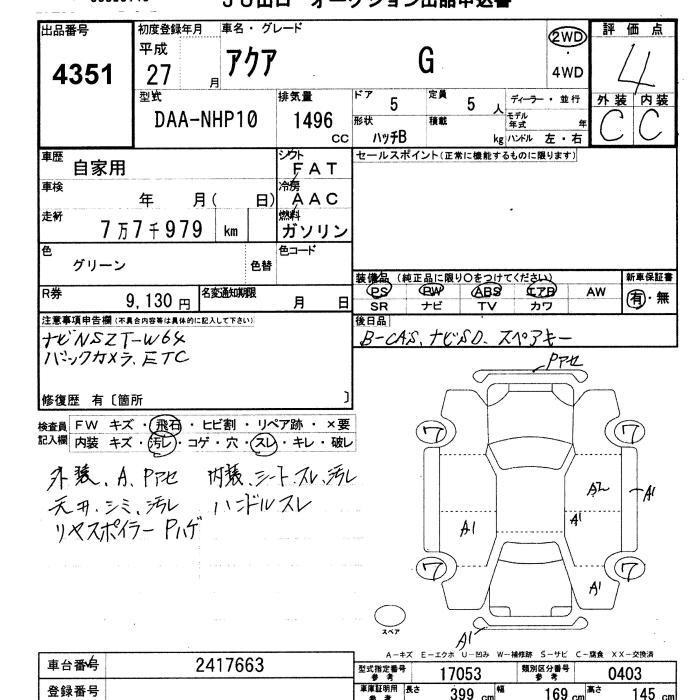 JU山口 オークション出品申込書
出品番号 4351
初度登録年月 平成 27 月
車名・グレード アクア G
2WD
4WD
評価点 4
外装 C 内装 C
型式 DAA-NHP10
排気量 1496 CC
ドア 5
定員 5 人
形状 ハッチB
積載 kg
ディーラー・並行
モデル年式 年
ハンドル 左・右
車歴 自家用
シフト FAT
セールスポイント(正常に機能するものに限ります)
車検 年 月( 日)
冷房 AAC
走行 7万7千979 km
燃料 ガソリン
色 グリーン 色替
色コード
装備品 (純正品に限り○をつけてください)
PS PW ABS エアB AW
SR ナビ TV カワ
新車保証書 有・無
R券 9,130円
名変通知期限 月 日
後日品
B-CAS、ナビSD、スペアキー
注意事項申告欄(不具合内容等は具体的に記入して下さい)
ナビNSZT-W64
バックカメラ、ETC
修復歴 有〔箇所 〕
検査員記入欄
FW キズ・飛石・ヒビ割・リペア跡・×要
内装 キズ・汚レ・コゲ・穴・スレ・キレ・破レ
外装、A、Pアセ 内装、シート、スレ、汚レ
天井、シミ、汚レ ハンドルスレ
リヤスポイラーPハゲ
Pアセ
ワ ワ
A2 A1
A1 A1
ワ ワ
A1
スペア
A1
A-キズ E-エクボ U-凹み W-補修跡 S-サビ C-腐食 XX-交換済
車台番号 2417663
型式指定番号 参考 17053
類別区分番号 参考 0403
登録番号
車庫証明用 参考 長さ 399 cm 幅 169 cm 高さ 145 cm